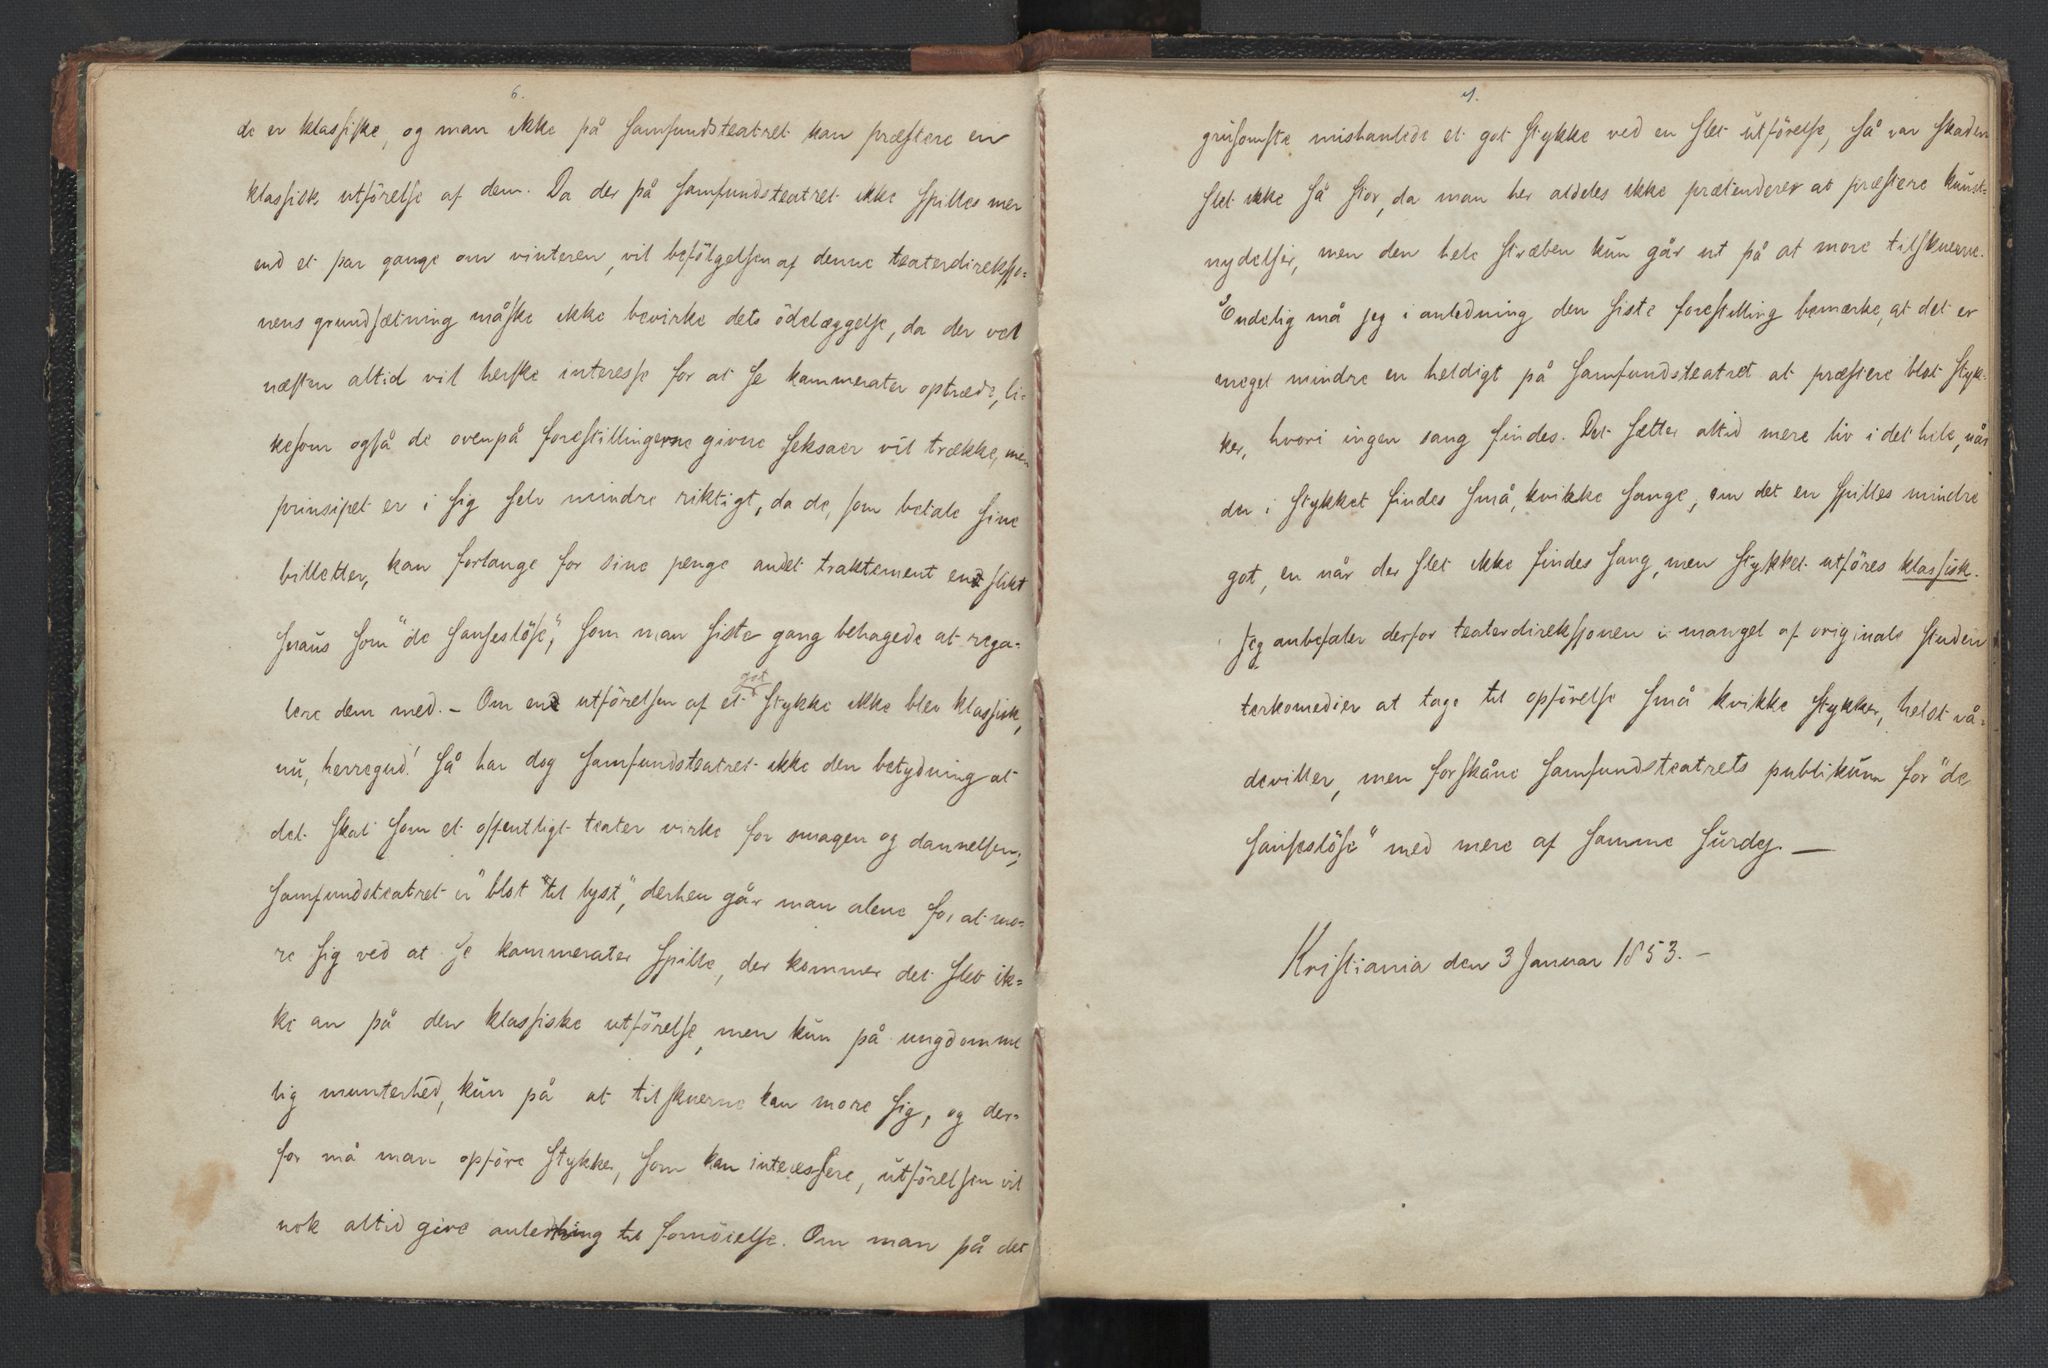 6.
de er klassiske, og man ikke på samfundsteatret kan præstere en
klassisk utförelse af dem. Da der på samfundsteatret ikke spilles mer
end et par gange om vinteren, vil befölgelsen af denne teaterdireksjo-
nens grundsætning måske ikke bevirke dets ödelæggelse, da der vel
næsten altid vil herske interesse for at se kammerater optræde, li-
kesom også de ovenpå forestillingerne givne seksaer vil trække, men
prinsipet er i sig selv mindre riktigt, da de, som betale sine
billetter, kan forlange for sine penge andet traktement end slikt
snaus som "de sanseslöse", som man siste gang behagede at rega-
lere dem med. – Om end utförelsen af et got stykke ikke blev klassisk,
nu, herregud! så har dog samfundsteatret ikke den betydning at
det skal som et offentligt teater virke for smagen og dannelsen;
samfundsteatret er blot "til lyst", derhen går man alene for at mo-
re sig ved at se kammerater spille, der kommer det slet ik-
ke an på den klassiske utförelse, men kun på ungdomme
lig munterhed, kun på at tilskuerne kan more sig, og der-
for må man opföre stykker, som kan interessere, utförelsen vil
nok altid give anledning til fornöielse. Om man på det
7.
grusomste mishanlede et got stykke ved en slet utförelse, så var skaden
slet ikke så stor, da man her aldeles ikke prætenderer at præstere kunst-
nydelser, men den hele stræben kun går ut på at more tilskuerne.
Endelig må jeg i anledning den siste forestilling bemærke, at det er
meget mindre en heldigt på samfundsteatret at præstere blot styk-
ker, hvori ingen sang findes. Det sætter altid mere liv i det hele, når
der i stykket findes små, kvikke sange, om det en spilles mindre
got, en når der slet ikke findes sang, men stykket utföres klassisk.
Jeg anbefaler derfor teaterdireksjonen i mangel af originale studen
terkomedier at tage til opförelse små kvikke stykker, helst vå-
deviller, men forskåne samfundsteatrets publikum for "de
sanseslöse" med mere af samme surdej. —
Kristiania den 3 Januar 1853. –